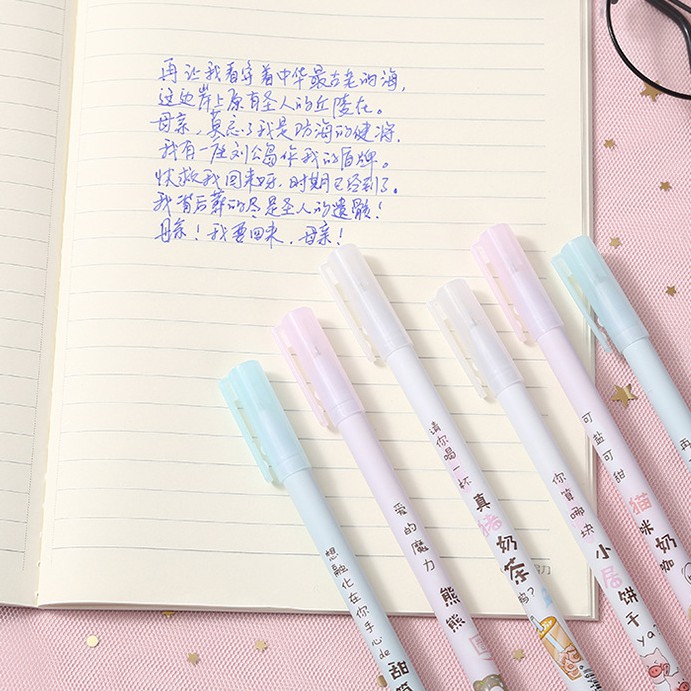 再让我看守着中华最古老的海，
这边岸上原有圣人的丘陵在。
母亲，莫忘了我是防海的健将，
我有一座刘公岛作我的盾牌。
快救我回来呀，时期已经到了。
我背后葬的尽是圣人的遗骸！
母亲！我要回来，母亲！
想融化在你手心de甜筒
爱的魔力熊熊圈
请你喝一杯真猪奶茶吗？
你算哪块小居饼干ya?
可盐可甜猫咪奶咖
再